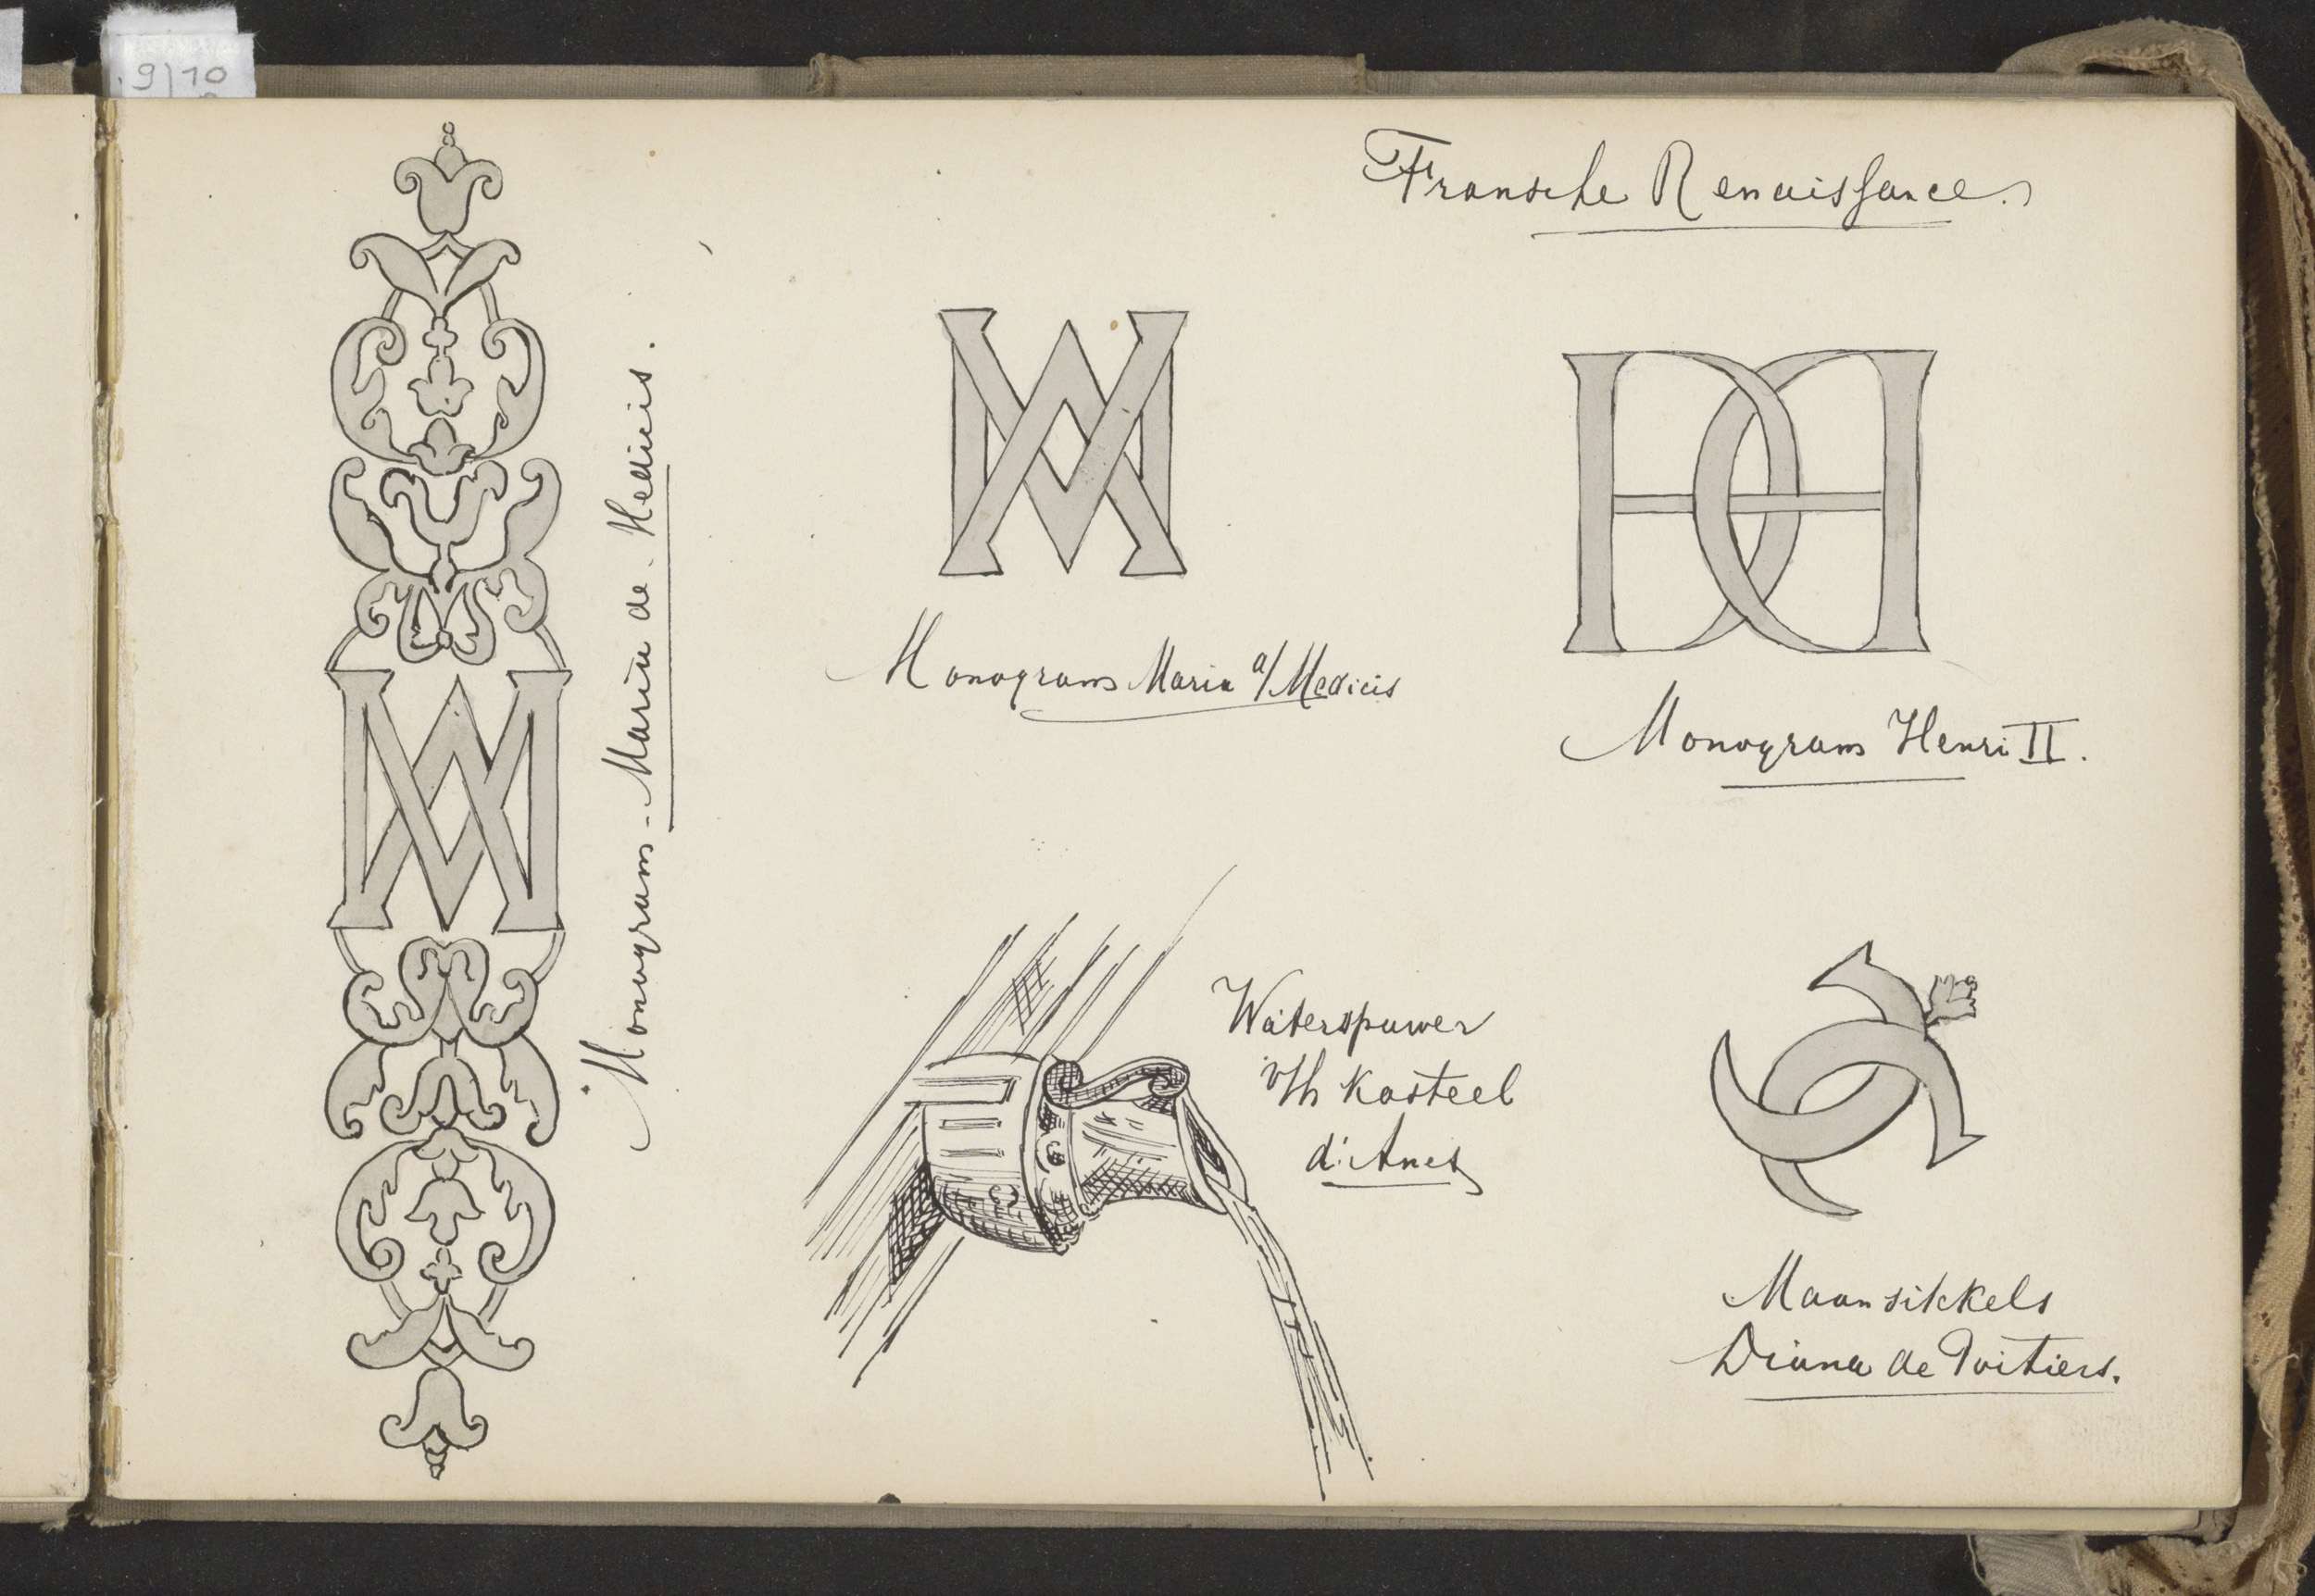 9/10
Fransche Renaissance.
Monogram - Maria de Medicis.
Monogram Maria d/ Medicis
Monogram Henri II.
Waterspuwer
v/h Kasteel
d'Anet
Maansikkels
Diana de Poitiers.